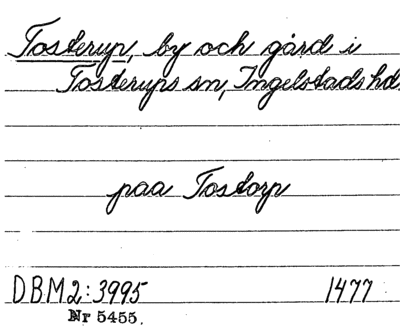 Tosterup, by och gård i
Tosterups sn, Ingelstads hd.
paa Tostorp
DBM2:3995 1477
Nr 5455.